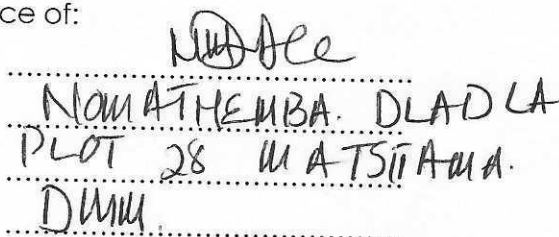 ce of:
NOMATHEMBA. DLADLA
PLOT 28 MATSITAMA.